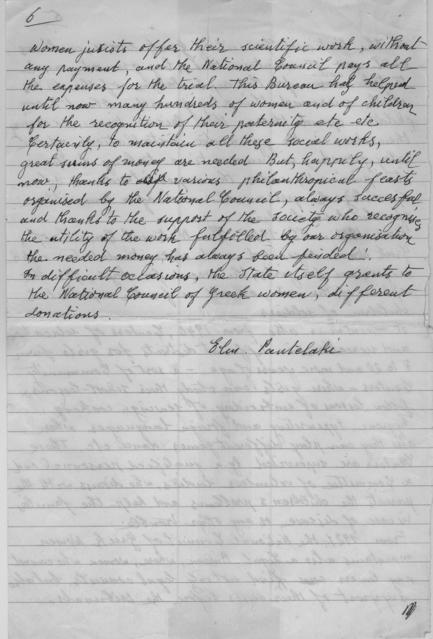 6
Women jusists offer their scientific work, without
any payment, and the National Council pays all
the expenses for the trial. This Bureau has helped
until now many hundreds of women and of children
for the recognition of their paternity etc etc
Certainly, to maintain all these social works,
great sums of money are needed But, happily, until
now, thanks to various philanthropical feasts
organised by the National Council, always successful
and thanks to the support of the society who recognises
the utility of the work fulfilled by our organisation
the needed money has always been
In difficult occasions, the State itself grants to
the National Council of Greek women, different
donations.
Pantelaki